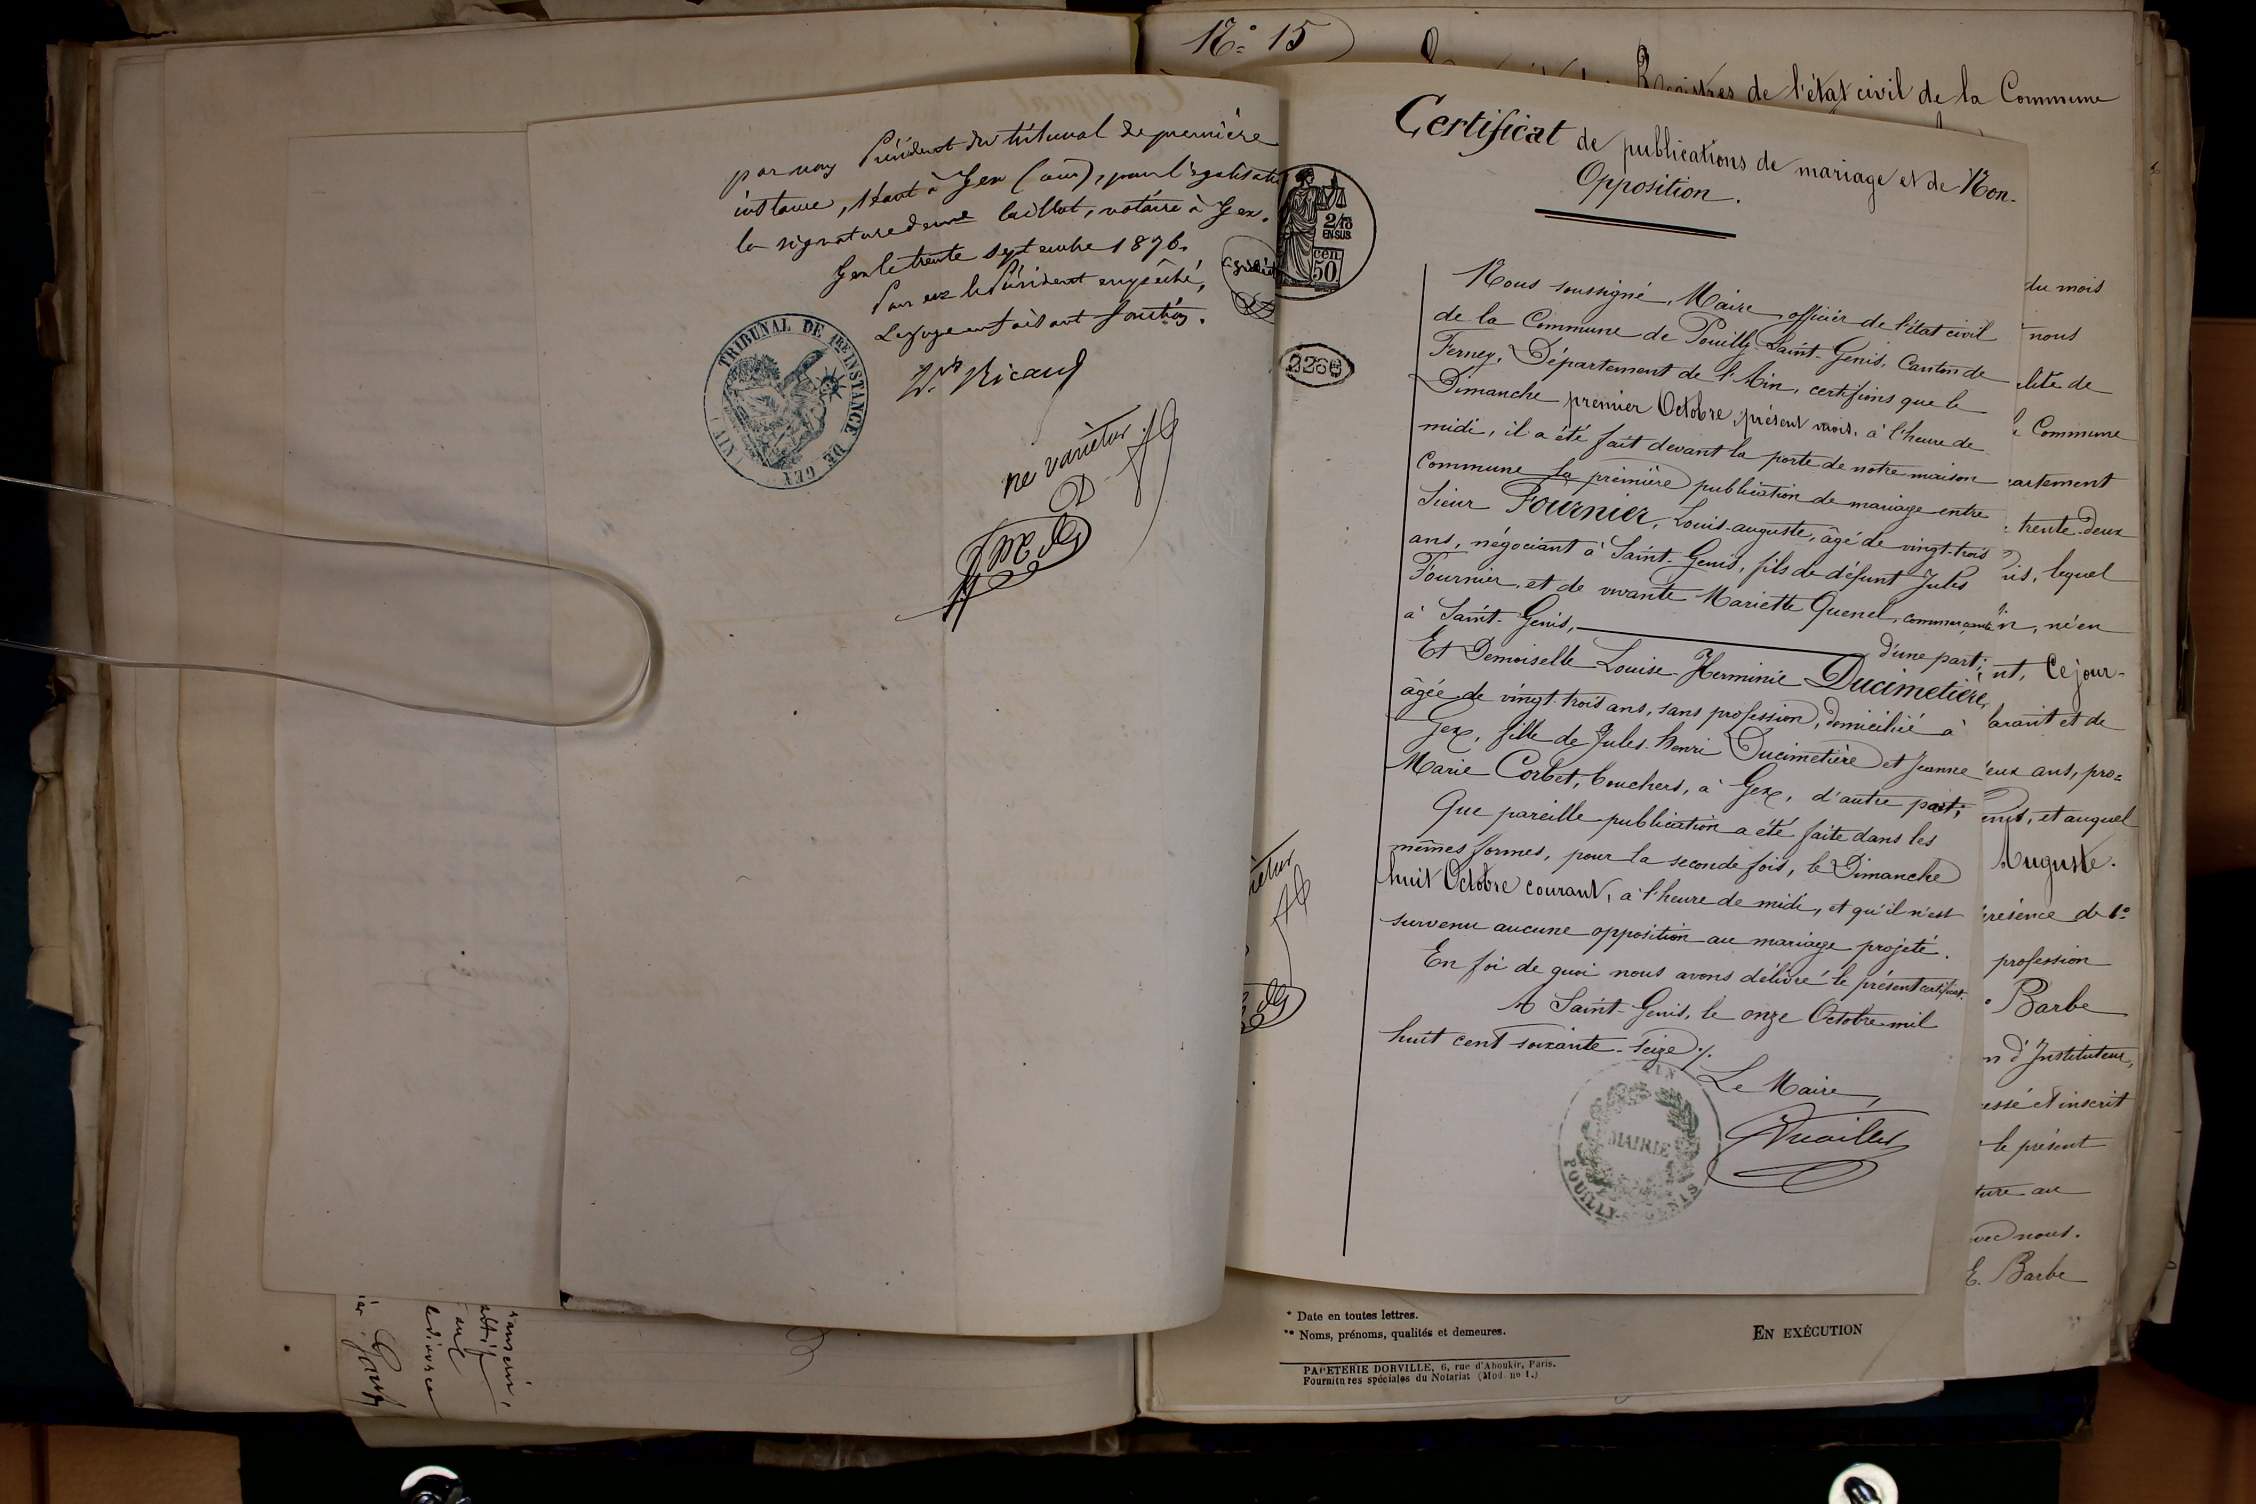 par nous Président du tribunal de première
instance, séant à Gex (ain), pour légalisation
la signature de me Caillat, notaire à Gex.
Gex le trente septembre 1876.
Pour mr le Président empêché,
Le juge en faisant fonction.
Ricaud
TRIBUNAL DE 1RE INSTANCE DE GEX (AIN)
ne varietur
2/10
EN SUS
50
cen
2266
N.o 15
Registres de l'état civil de la Commune
Certificat de publications de mariage et de Non-
Opposition.
Nous soussigné, Maire, officier de l'état civil
de la Commune de Pouilly-Saint-Genis, Canton de
Ferney, Département de l'Ain, certifions que le
Dimanche premier Octobre, présent mois, à l'heure de
midi, il a été fait devant la porte de notre maison
Commune la première publication de mariage entre
Sieur Fournier, Louis-auguste, âgé de vingt-trois
ans, négociant à Saint-Genis, fils de défunt Jules
Fournier, et de vivante Mariette Quenel, commerçante
à Saint-Genis, d'une part;
Et Demoiselle Louise-Herminie Ducimetière,
âgée de vingt-trois ans, sans profession, domiciliée à
Gex, fille de Jules-henri Ducimetière et Jeanne
Marie Corbet, bouchers, à Gex, d'autre part;
Que pareille publication a été faite dans les
mêmes formes, pour la seconde fois, le Dimanche
huit Octobre courant, à l'heure de midi, et qu'il n'est
survenu aucune opposition au mariage projeté.
En foi de quoi nous avons délivré le présent certificat.
A Saint-Genis, le onze Octobre mil
huit cent soixante-seize ./.
Le Maire,
AIN
MAIRIE
POUILLY-ST GENIS
du mois
nous
Commune
trente-deux
lequel
né en
Ce jour-
et de
ans, pro=
et auquel
Auguste.
de 1o
profession
Barbe
d'Instituteur,
et inscrit
le présent
au
nous.
E. Barbe
* Date en toutes lettres.
** Noms, prénoms, qualités et demeures.
EN EXÉCUTION
PAPETERIE DORVILLE, 6, rue d'Aboukir, Paris.
Fournitures spéciales du Notariat (Mod. no 1.)